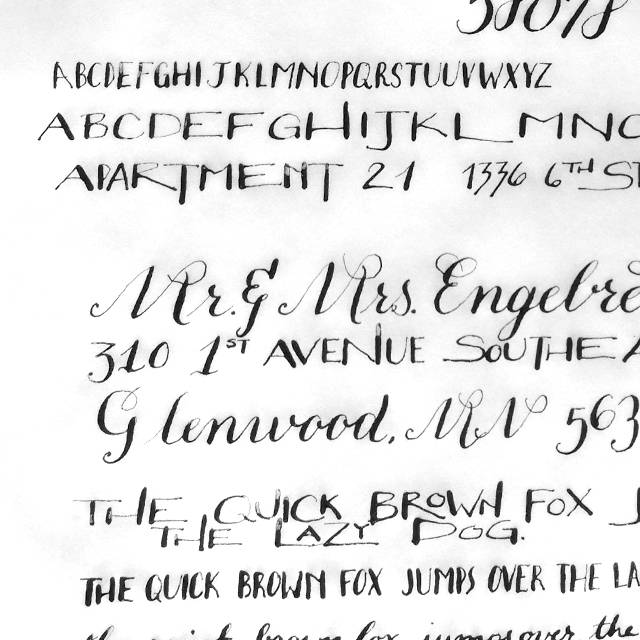 ABCDEFGHIJKLMNOPQRSTUUVWXYZ
ABCDEFGHIJKL MNO
APARTMENT 21 1336 6TH ST
Mr. & Mrs. Engelbre
310 1ST AVENUE SOUTHEA
Glenwood, MN 563
THE QUICK BROWN FOX J
THE LAZY DOG.
THE QUICK BROWN FOX JUMPS OVER THE LA
the quick brown fox jumps over the